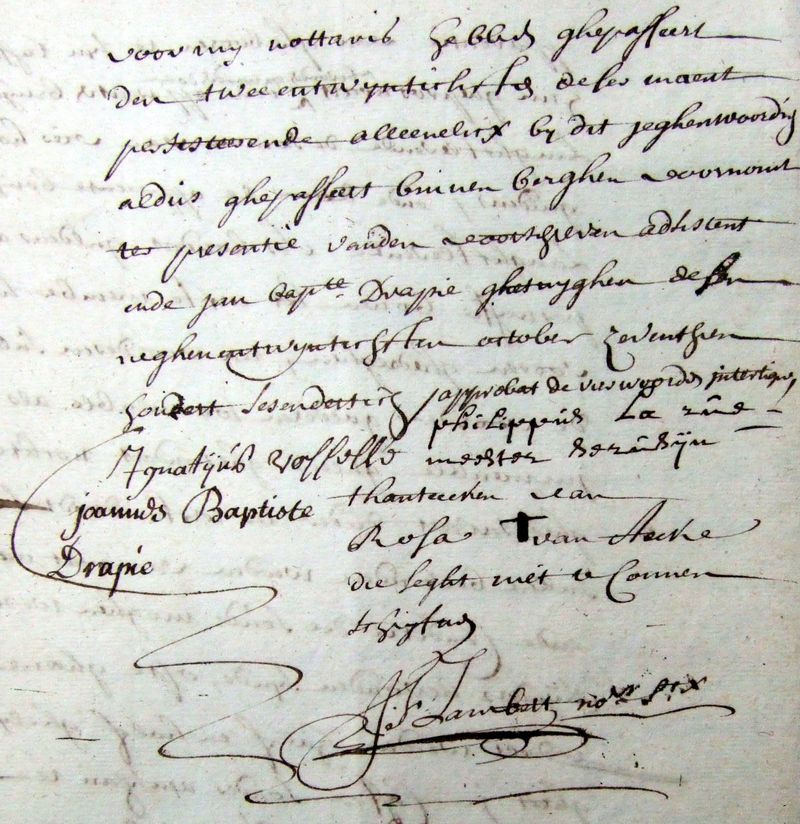 voor my nottaris hebben ghepasseert
den tweentwyntichsten deser maent
persisteerende alleenelick by dit jeghenwoordig
aldus ghepasseert binnen berghen voornomt
ter presentie vanden voorschreven adsistent
ende jan bapte Drapie ghetuyghen desen
neghenentwyntichsten october zeventhien
hondert sesendertich japprobat de vier woorden interligne,
philippus La rue
Ignatyus vosselle meester
joannes Baptiste thanteecken van
Drapie Rosa † van Hecke
die seght niet te Connen
schryfven
Lambert nors